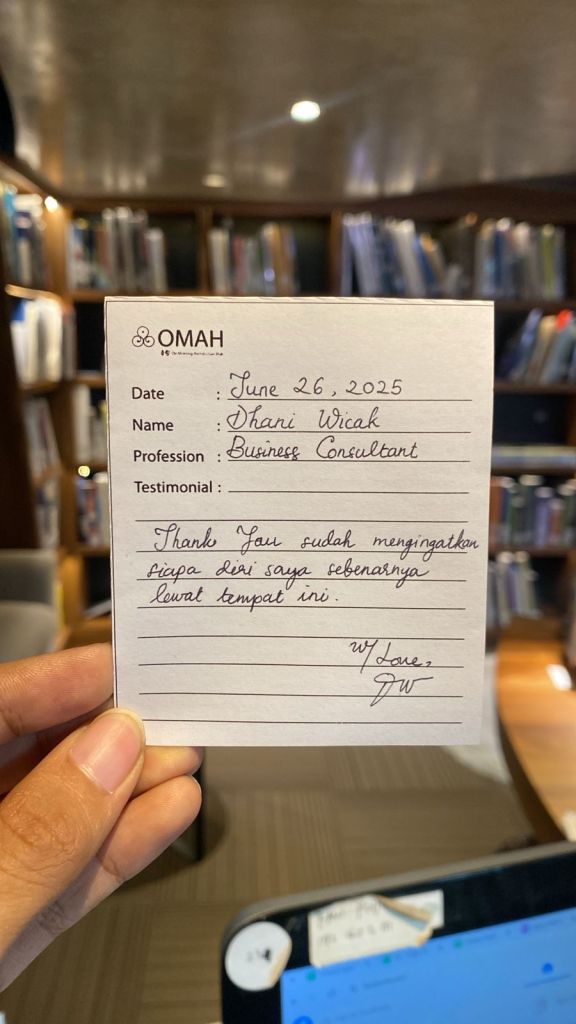 OMAH
Date : June 26, 2025
Name : Dhani Wicak
Profession : Business Consultant
Testimonial :
Thank You sudah mengingatkan
siapa diri saya sebenarnya
lewat tempat ini.
w/ Love,
DW